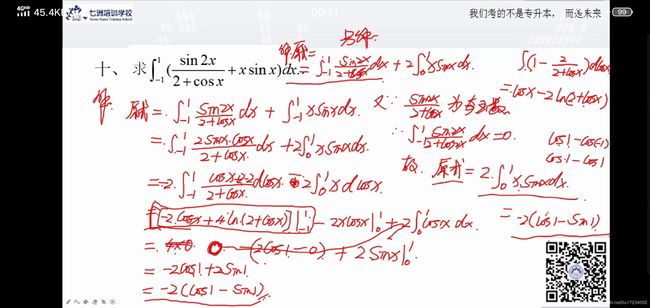 45.4K
00:11
99
七洲培训学校
我们考的不是专升本，而是未来
十、求∫_{-1}^{1}(sin 2x/(2+cos x) + x sin x)dx.
另解:
原式= ∫_{-1}^{1} sin2x/(2+cosx) dx + 2∫_0^1 x sinx dx.
∫(1 - 2/(2+cosx)) dcosx
= cosx - 2ln(2+cosx)
解: 原式 = ∫_{-1}^{1} sin2x/(2+cosx) dx + ∫_{-1}^{1} x sinx dx.
又∵ sin2x/(2+cosx) 为奇函数
= ∫_{-1}^{1} 2sinx·cosx/(2+cosx) dx + 2∫_0^1 x sinx dx.
∴ ∫_{-1}^{1} sin2x/(2+cosx) dx = 0.
cos1 - cos(-1)
cos1 - cos1
= -2∫_{-1}^{1} (cosx+2-2)/(2+cosx) dcosx - 2∫_0^1 x dcosx.
故 原式 = 2∫_0^1 x sinx dx.
= [-2cosx + 4ln(2+cosx)]|_{-1}^{1} - 2xcosx|_0^1 + 2∫_0^1 cosx dx.
= -2(cos1 - sin1)
= 0 - (2cos1 - 0) + 2sinx|_0^1
= -2cos1 + 2sin1
= -2(cos1 - sin1)